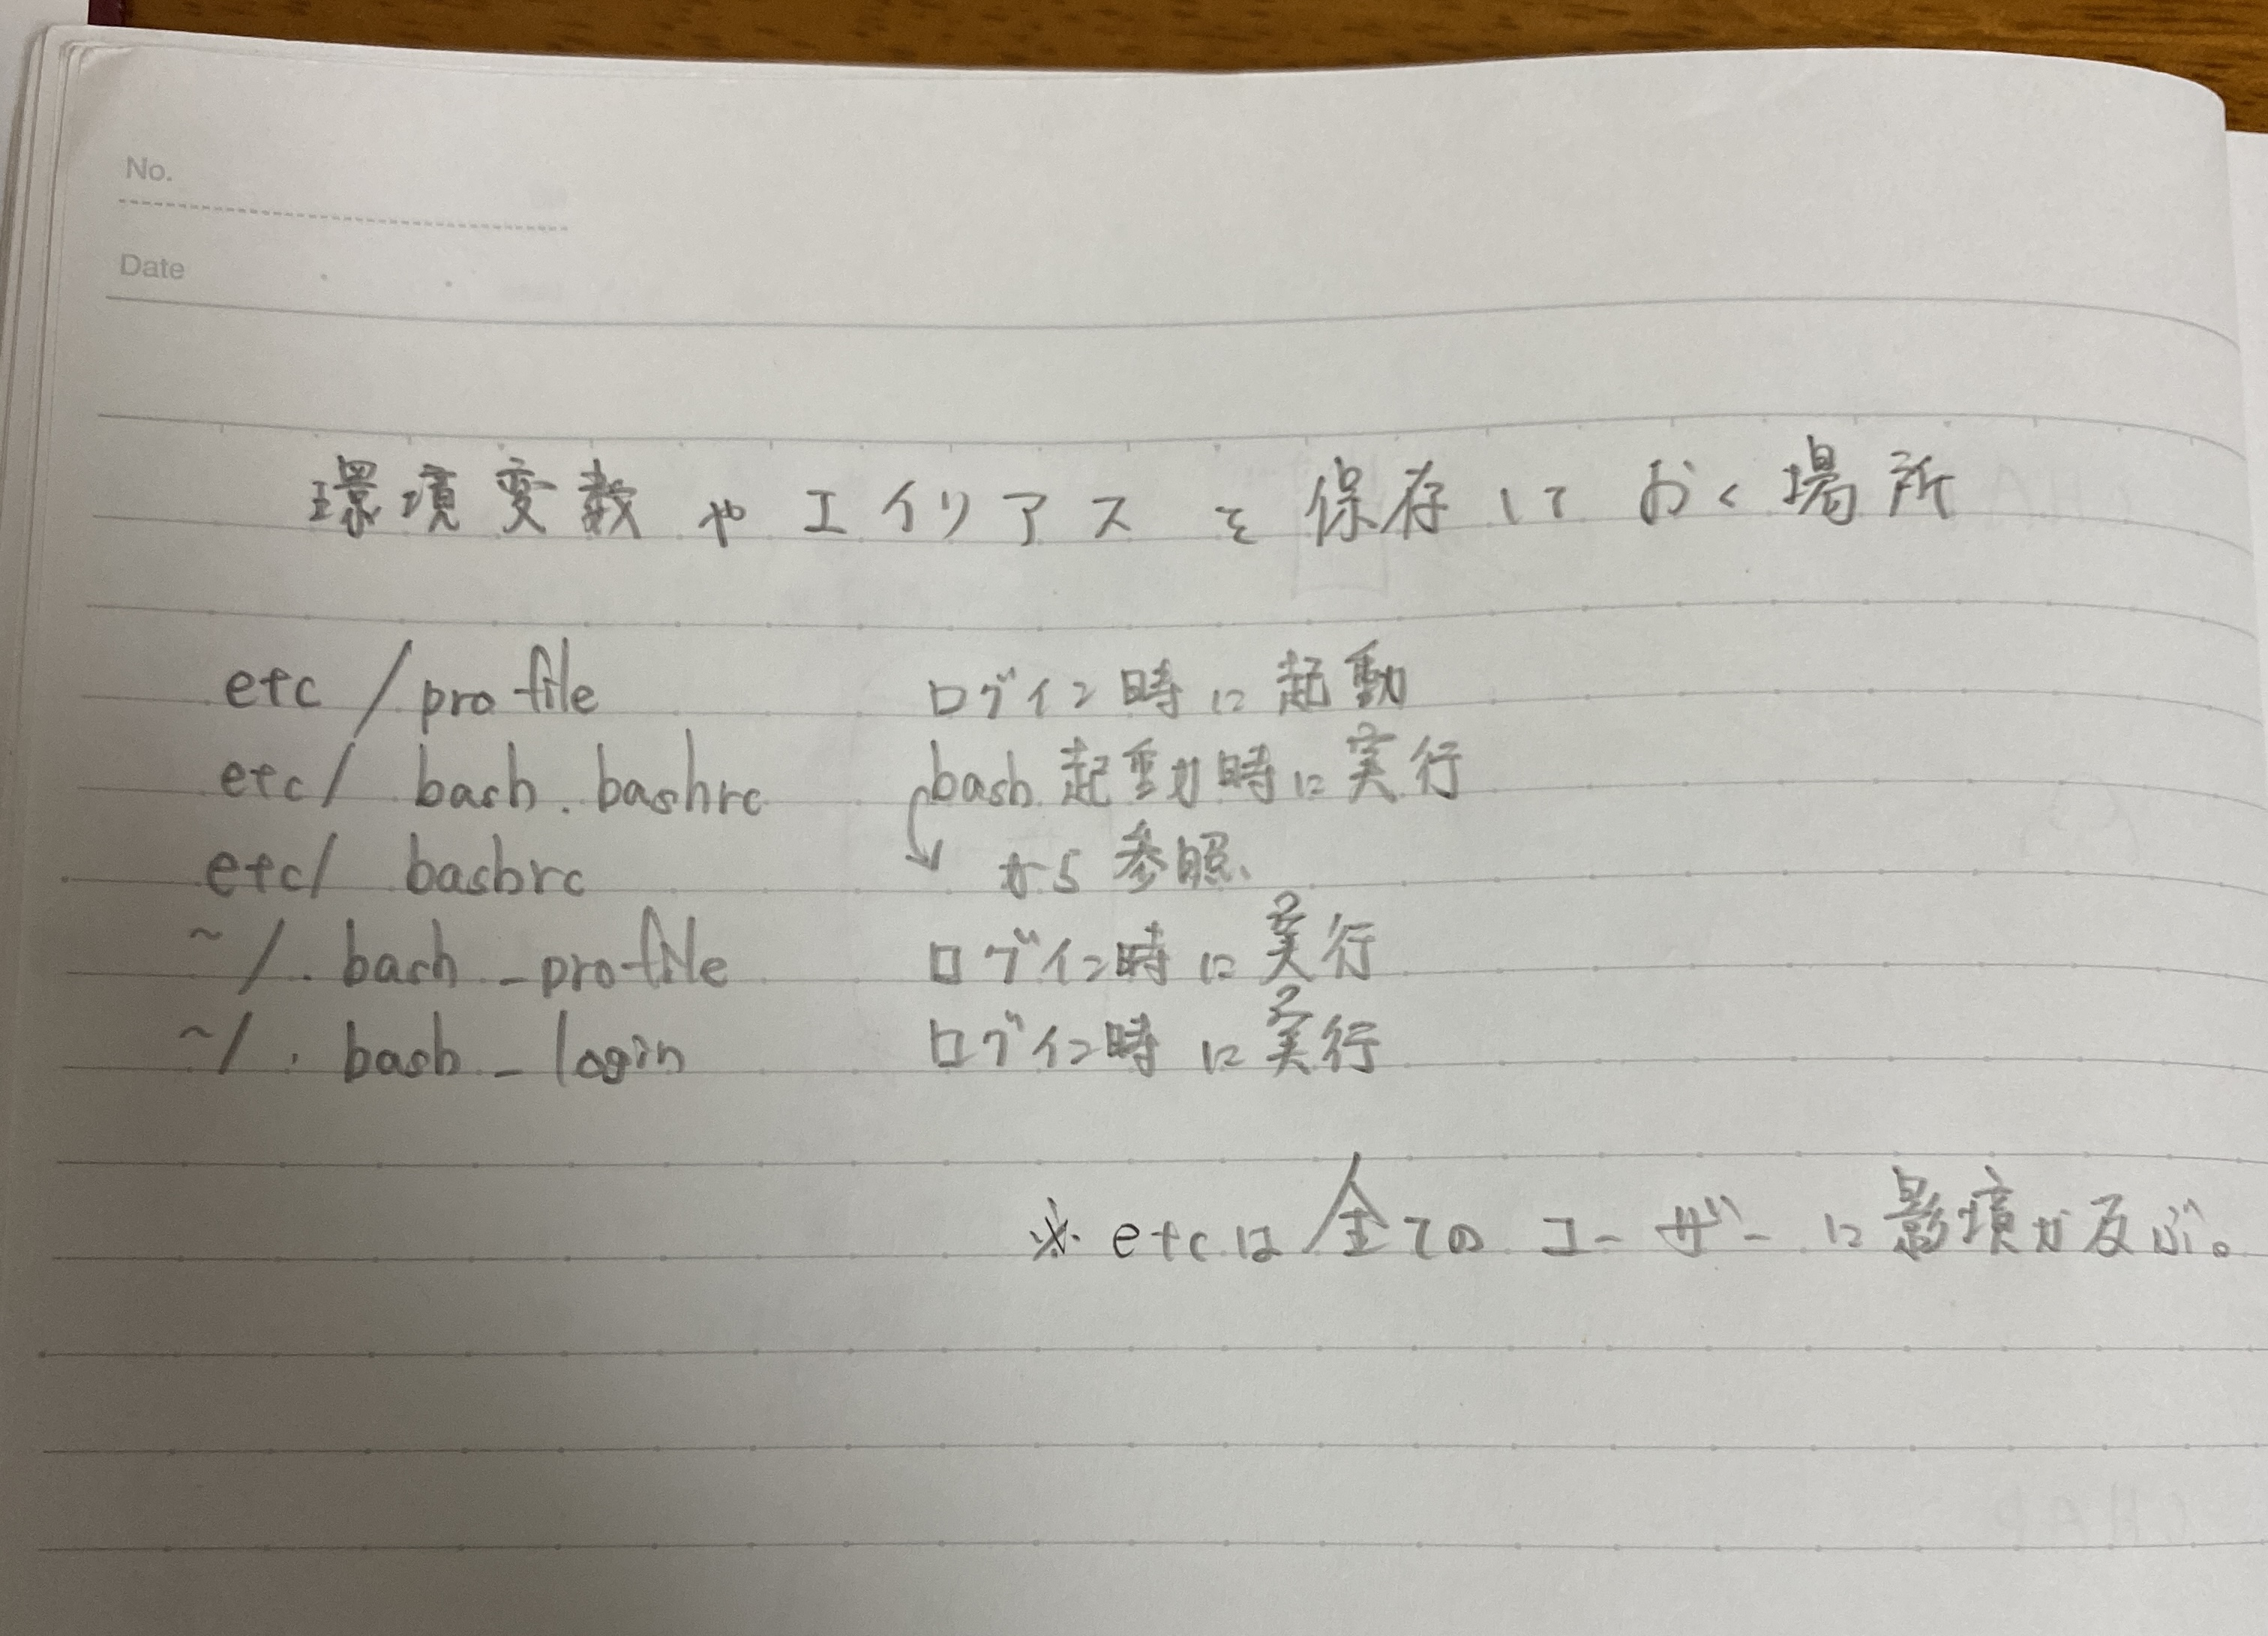 No.
Date
環境変数やエイリアスを保存しておく場所
etc/profile ログイン時に起動
etc/bash.bashrc bash起動時に実行
etc/bashrc から参照
~/.bash_profile ログイン時に実行
~/.bash_login ログイン時に実行
※etcは全てのユーザーに影境が及ぶ。